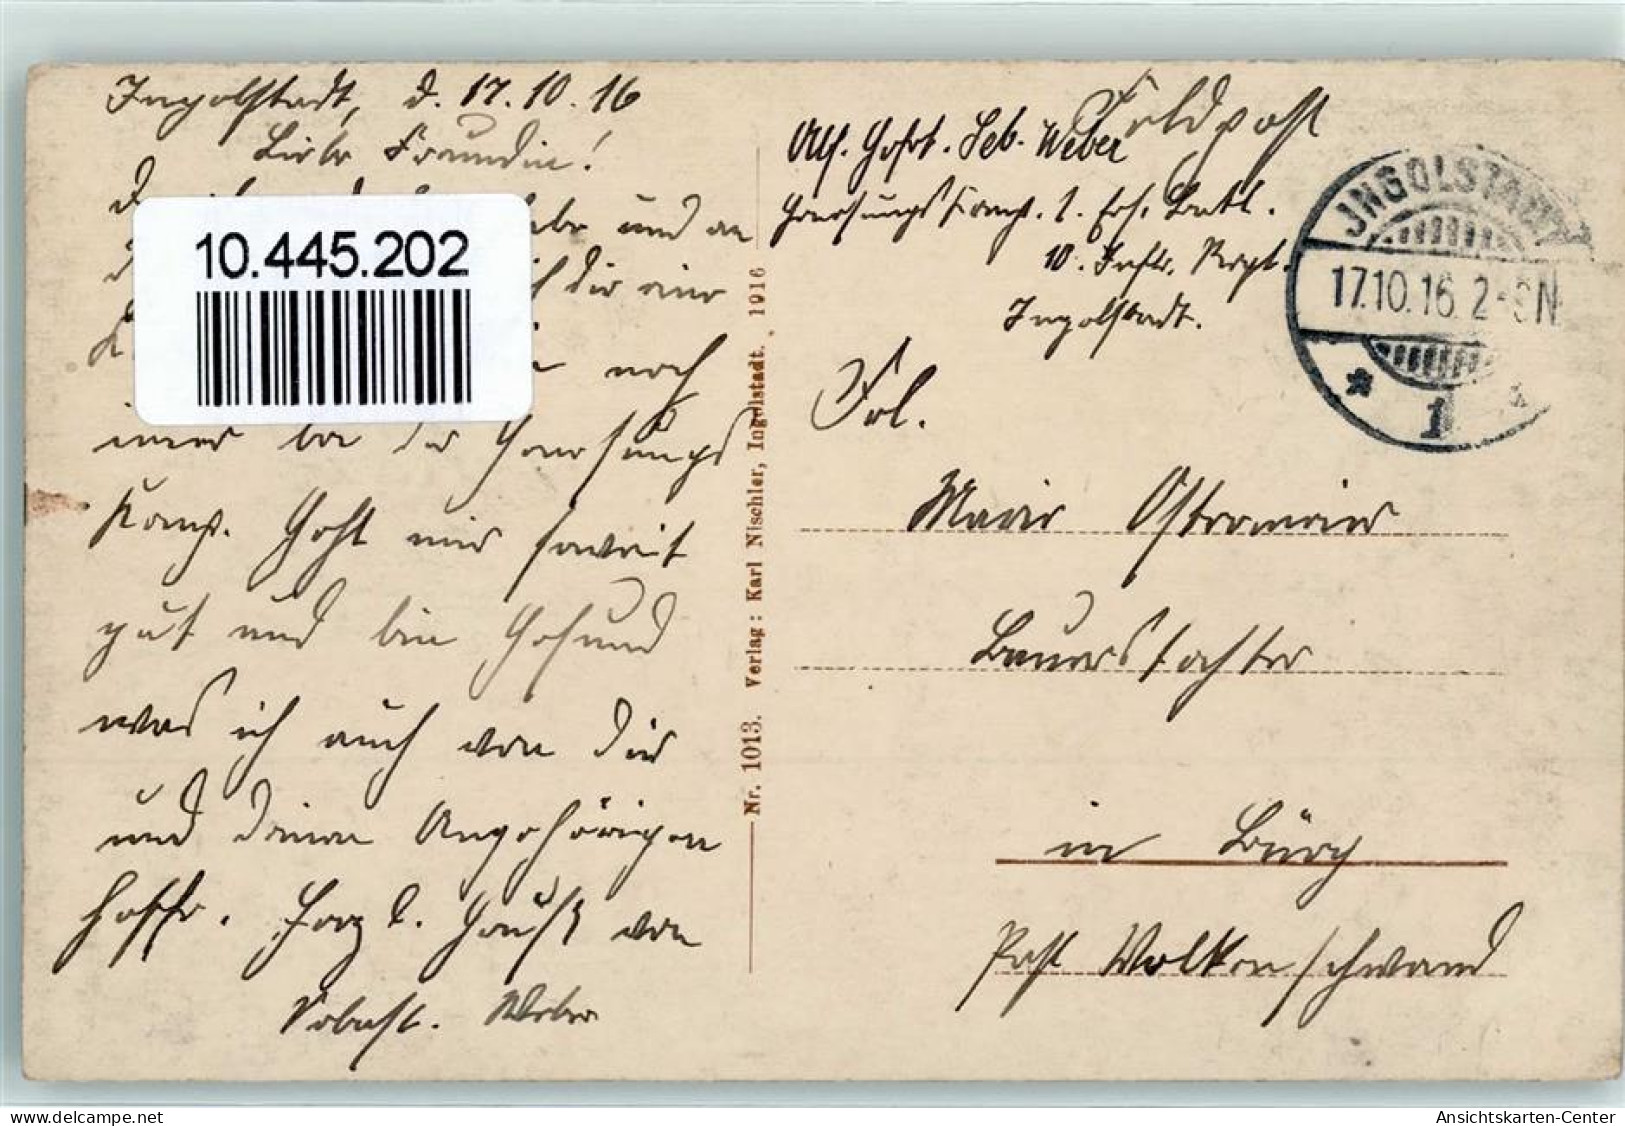 Ingolstadt, d. 17.10.16
Liebe Freundin!
habe und an
ich dir eine
noch
immer bei der Genesungs
Komp. Geht mir soweit
gut und bin Gesund
was ich auch von dir
und deinen Angehörigen
hoffe. Herzl. Gruß von
Sebast. Weber
10.445.202
Nr. 1013. Verlag: Karl Nischler, Ingolstadt. 1916
Feldpost
Abs. Gefrt. Seb. Weber
Genesungs Komp. 1. Ers. Batl.
10. Inftr. Regt.
Ingolstadt.
INGOLSTADT
17.10.16. 2-3N
* 1 *
Frl.
Marie Ostermeier
Bauerstochter
in Bürg
Post Wolkenschwand
www.ansichtskarten-center.de
Ansichtskarten-Center